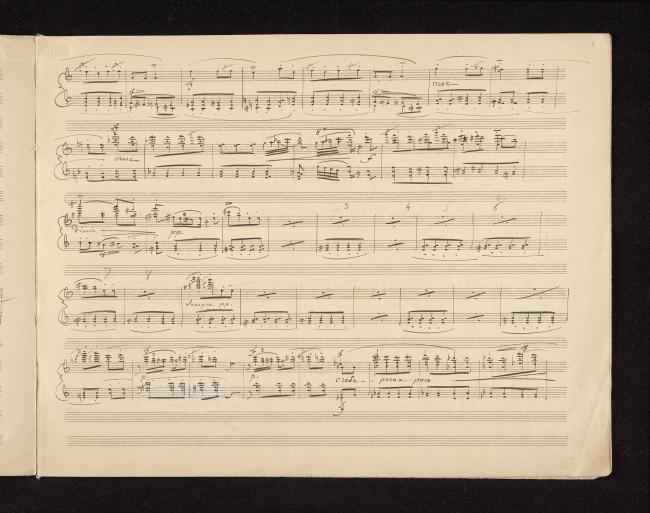 cresc
cresc
dimin pp.
3 4 5 6
7 8
Sempre pp.
p. p.
cresc - poco a poco